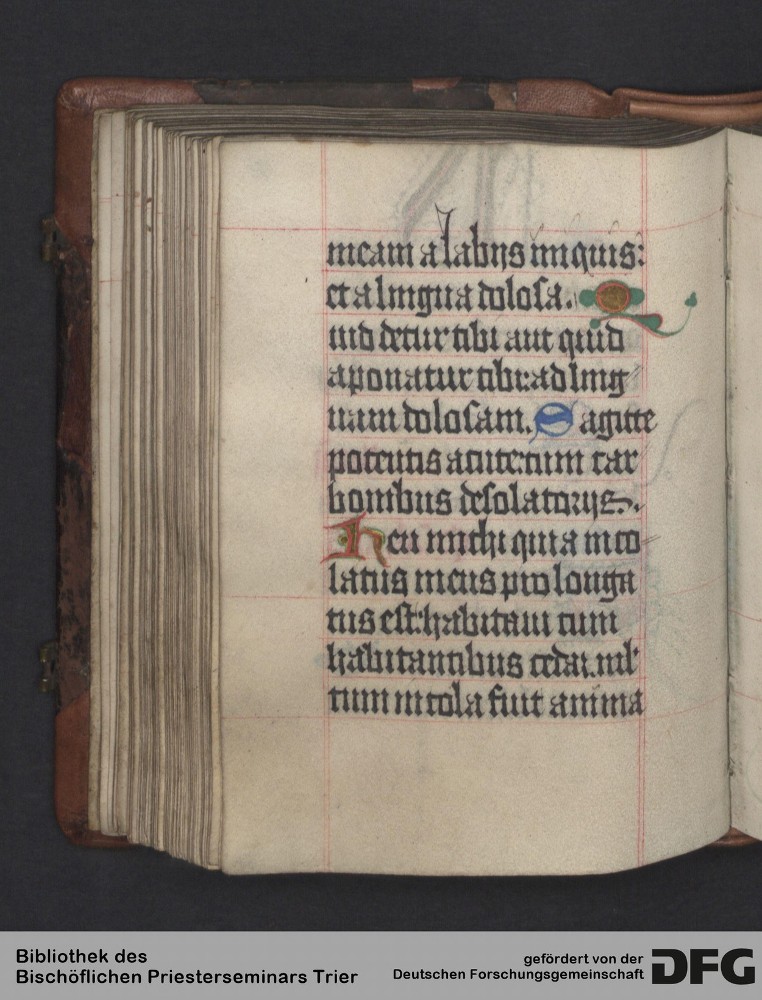 meam a labijs iniquis:
et a lingua dolosa. Q
uid detur tibi aut quid
aponatur tibi: ad ling
uam dolosam. Sagitte
potentis acute: cum car
bonibus desolatorijs.
Heu michi quia inco
latus meus prolonga
tus est: habitaui cum
habitantibus cedar. mul
tum incola fuit anima
Bibliothek des
Bischöflichen Priesterseminars Trier
gefördert von der
Deutschen Forschungsgemeinschaft
DFG